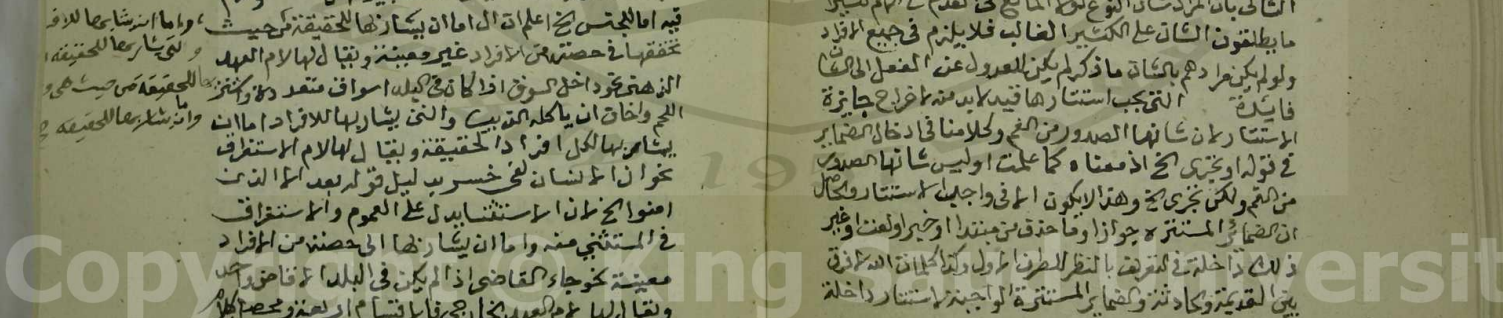 الثانى بان المراد شان النوع
ما يطلقون الشان على الكثير الغالب فلا يلزم فى جميع الافراد
ولو لم يكن مرادهم بالشان ما ذكر لم يكن للعدول عن الفعل الى الشان
فايدة التى يجب استتارها قيد لا بد منه لاخراج جايزة
الاستتار لان شانها الصدور من الفم وكلامنا فى ادخال الضماير
فى قوله او يجرى الخ اذ معناه كما علمت او ليس شانها الصدور
من الفم ولكن تجرى الخ وهذا لا يكون الا فى واجب الاستتار والحاصل
ان الضماير المستترة جوازا وما حذف من مبتدا او خبر او نعت او غير
ذلك داخلة فى التعريف بالنظر للطرف الاول وكذا كلمات الله لا فرق
بين القديمة والحادثة والضماير المستترة الواجبة الاستتار داخلة
فيه اما للجنس الخ اعلم ان ال اما ان يشار بها للحقيقة من حيث
تحققها فى حصة من الافراد غير معينة ويقال لها لام العهد
الذهنى نحو ادخل السوق اذا كان فى البلد اسواق متعددة واشتر
اللحم واخاف ان ياكله الذيب والتى يشار بها للافراد اما ان
يشار بها لكل افراد الحقيقة ويقال لها لام الاستغراق
نحو ان الانسان لفى خسر بدليل قوله بعد الا الذين
امنوا الخ لان الاستثنا يدل على العموم والاستغراق
فى المستثنى منه واما ان يشار بها الى حصة من الافراد
معينة نحو جاء القاضى اذا لم يكن فى البلد الا قاض واحد
ويقال لها لام العهد
واما ان يشار بها للافراد
والتى يشار بها للحقيقة
للحقيقة من حيث هى
واما ان يشار بها للحقيقة
Copyright © King Saud Universit
19